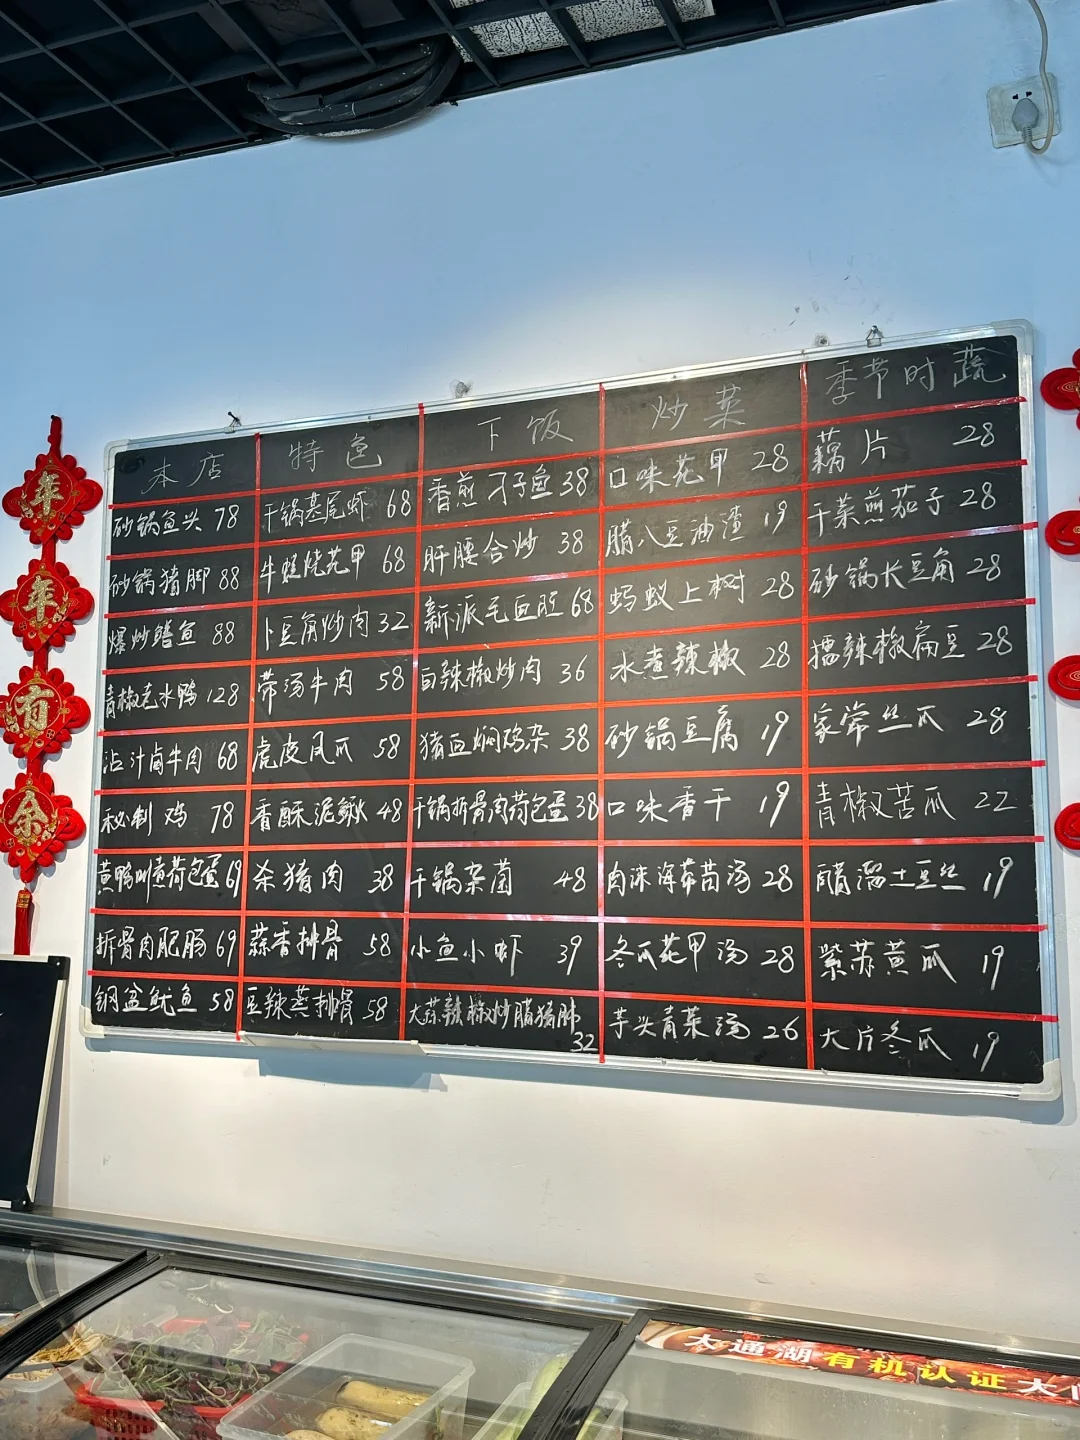 本店
特色
下饭
炒菜
季节时蔬
砂锅鱼头 78
干锅基尾虾 68
香煎刁子鱼 38
口味花甲 28
藕片 28
砂锅猪脚 88
牛蛙烧花甲 68
肝腰合炒 38
腊八豆油渣 19
干菜煎茄子 28
爆炒鳝鱼 88
卜豆角炒肉 32
新派毛血旺 68
蚂蚁上树 28
砂锅长豆角 28
青椒老水鸭 128
带汤牛肉 58
白辣椒炒肉 36
水煮辣椒 28
擂辣椒扁豆 28
沾汁卤牛肉 68
虎皮凤爪 58
猪血焖鸡杂 38
砂锅豆腐 19
家常丝瓜 28
秘制鸡 78
香酥泥鳅 48
干锅拆骨肉荷包蛋 38
口味香干 19
青椒苦瓜 22
黄鸭叫煮荷包蛋 69
杀猪肉 38
干锅杂菌 48
肉沫海苔汤 28
醋溜土豆丝 19
拆骨肉肥肠 69
蒜香排骨 58
小鱼小虾 39
冬瓜花甲汤 28
紫苏黄瓜 19
钢盆鱿鱼 58
豆辣蒸排骨 58
大蒜辣椒炒腊猪肺
32
芋头青菜汤 26
大片冬瓜 19
年
年
有
余
大通湖有机认证大